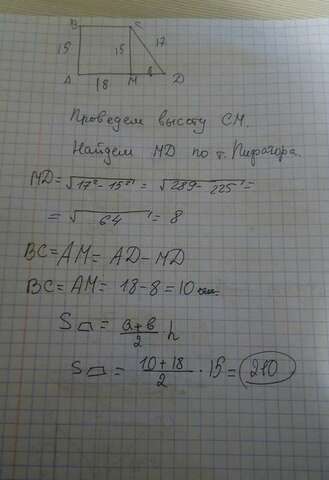 B C
15 15 17
A 18 M 8 D
Проведем высоту СМ.
Найдем MD по т. Пифагора.
MD = √17² - 15² = √289 - 225 =
= √64 = 8
BC = AM = AD - MD
BC = AM = 18 - 8 = 10
S⏢ = a+b/2 h
S⏢ = 10+18/2 · 15 = 210